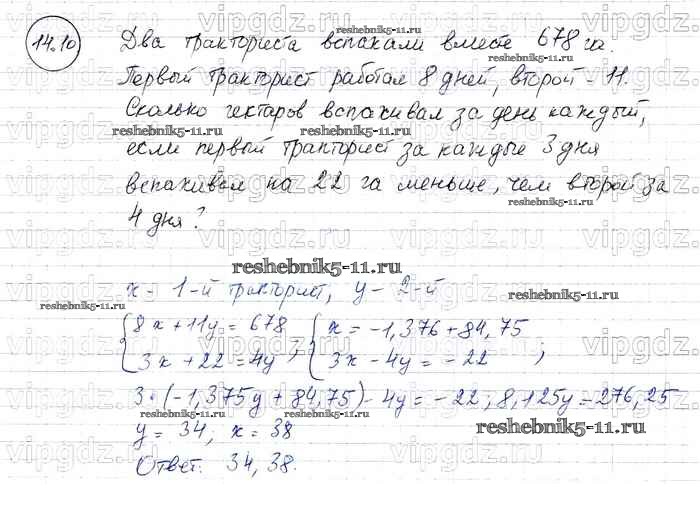 14.10
Два тракториста вспахали вместе 678 га.
Первый тракторист работал 8 дней, второй - 11.
Сколько гектаров вспахивал за день каждый,
если первый тракторист за каждые 3 дня
вспахивал на 22 га меньше, чем второй за
4 дня?
x - 1-й тракторист, y - 2-й
{8x + 11y = 678 ; {x = -1,376 + 84,75 ;
{3x + 22 = 4y {3x - 4y = -22
3·(-1,375y + 84,75) - 4y = -22; 8,125y = 276,25
y = 34, x = 38
Ответ: 34, 38.
reshebnik5-11.ru
vipgdz.ru